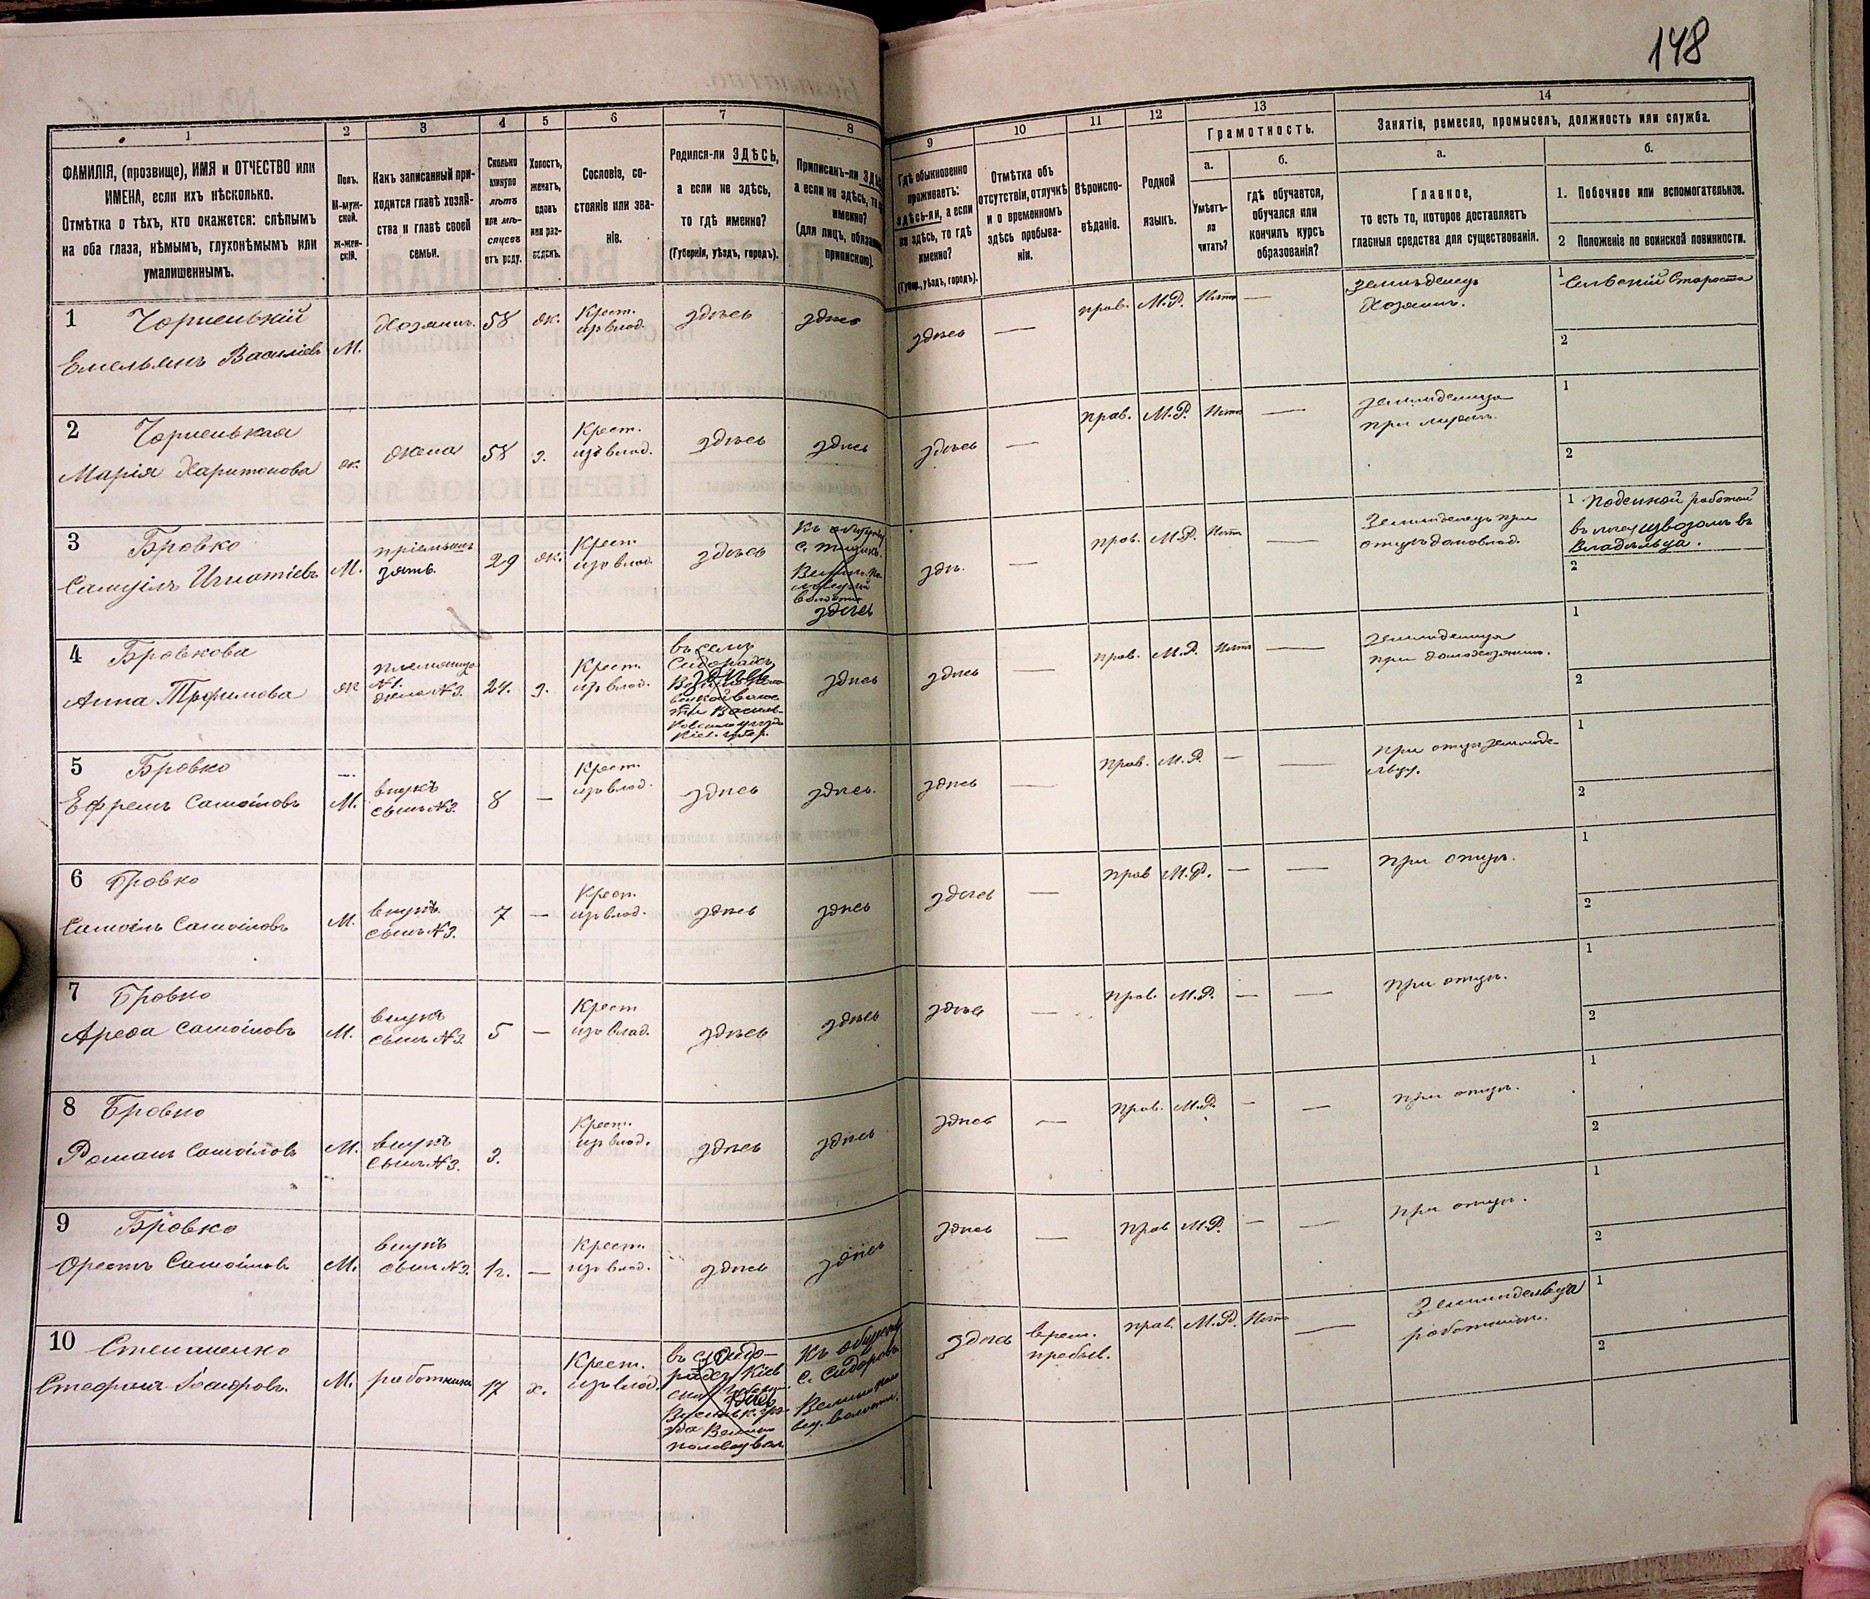 148
1
2
3
4
5
6
7
8
9
10
11
12
13
14
ФАМИЛІЯ, (прозвище), ИМЯ и ОТЧЕСТВО или
ИМЕНА, если ихъ нѣсколько.
Отмѣтка о тѣхъ, кто окажется: слѣпымъ
на оба глаза, нѣмымъ, глухонѣмымъ или
умалишеннымъ.
Полъ.
М-муж-
ской.
ж-жен-
скій.
Какъ записанный при-
ходится главѣ хозяй-
ства и главѣ своей
семьи.
Сколько
минуло
лѣтъ
или мѣ-
сяцевъ
отъ роду.
Холостъ,
женатъ,
вдовъ
или раз-
веденъ.
Сословіе, со-
стояніе или зва-
ніе.
Родился-ли ЗДѢСЬ,
а если не здѣсь,
то гдѣ именно?
(Губернія, уѣздъ, городъ).
Приписанъ-ли
а если не здѣсь,
именно?
(для лицъ,
припискою).
Гдѣ обыкновенно
проживаетъ:
здѣсь-ли, а если
не здѣсь, то гдѣ
именно?
(Губер., уѣздъ, городъ).
Отмѣтка объ
отсутствіи, отлучкѣ
и о временномъ
здѣсь пребыва-
ніи.
Вѣроиспо-
вѣданіе.
Родной
языкъ.
Грамотность.
а.
б.
Умѣетъ-
ли
читать?
гдѣ обучается,
обучался или
кончилъ курсъ
образованія?
Занятіе, ремесло, промыселъ, должность или служба.
а.
б.
Главное,
то есть то, которое доставляетъ
главныя средства для существованія.
1. Побочное или вспомогательное.
2 Положеніе по воинской повинности.
1 Чорненькій
Емельянъ Василіевъ
М.
Хозяинъ.
58
ж.
Крест.
изъ влад.
здѣсь
здѣсь
здѣсь
—
прав.
М.Р.
Нѣтъ
—
Земледѣлецъ
Хозяинъ.
1 Сельскій Староста
2
2 Чорненькая
Марія Харитонова
ж.
жена
58
з.
Крест.
изъ влад.
здѣсь
здѣсь
здѣсь
—
прав.
М.Р.
Нѣтъ
—
Земледелица
при мужѣ.
1
2
3 Бровко
Самуилъ Игнатіевъ
М.
пріемышъ
зять.
29
ж.
Крест.
изъ влад.
здѣсь
здѣсь
здѣ.
—
прав.
М.Р.
Нѣтъ
—
Земледелецъ при
1 Поденной работой
извозомъ въ
Владѣльца.
2
4 Бровкова
Анна Трофимова
ж
племяница
№1.
жена №3.
24.
з.
Крест.
изъ влад.
здѣсь
здѣсь
здѣсь
—
прав.
М.Р.
Нѣтъ
—
Земледелица
при домохозяинѣ.
1
2
5 Бровко
Ефремъ Самойловъ
М.
внукъ
сынъ №3.
8
—
Крест.
изъ влад.
здѣсь
здѣсь.
здѣсь
—
Прав.
М.Р.
—
—
При отцѣ земледе-
льцу.
1
2
6 Бровко
Самойлъ Самойловъ
М.
внукъ
сынъ №3.
7
—
Крест.
изъ влад.
здѣсь
здѣсь
здѣсь
—
прав
М.Р.
—
—
При отцѣ.
1
2
7 Бровко
Арефа Самойловъ
М.
внукъ
сынъ №3.
5
—
Крест
изъ влад.
здѣсь
здѣсь
здѣсь
—
Прав.
М.Р.
—
—
При отцѣ.
1
2
8 Бровко
Романъ Самойловъ
М.
внукъ
сынъ №3.
3.
Крест.
изъ влад.
здѣсь
здѣсь
здѣсь
—
Прав.
М.Р.
—
—
При отцѣ.
1
2
9 Бровко
Орестъ Самойловъ
М.
внукъ
сынъ №3.
1г.
—
Крест.
изъ влад.
здѣсь
здѣсь
здѣсь
—
прав
М.Р.
—
—
При отцѣ.
1
2
10
М.
работникъ
17
х.
Крест.
изъ влад.
здѣсь
Къ обществу
с. Сидоровъ
здѣсь
врем.
пребыв.
прав.
М.Р.
Нѣтъ
—
Земледельца
работникъ.
1
2